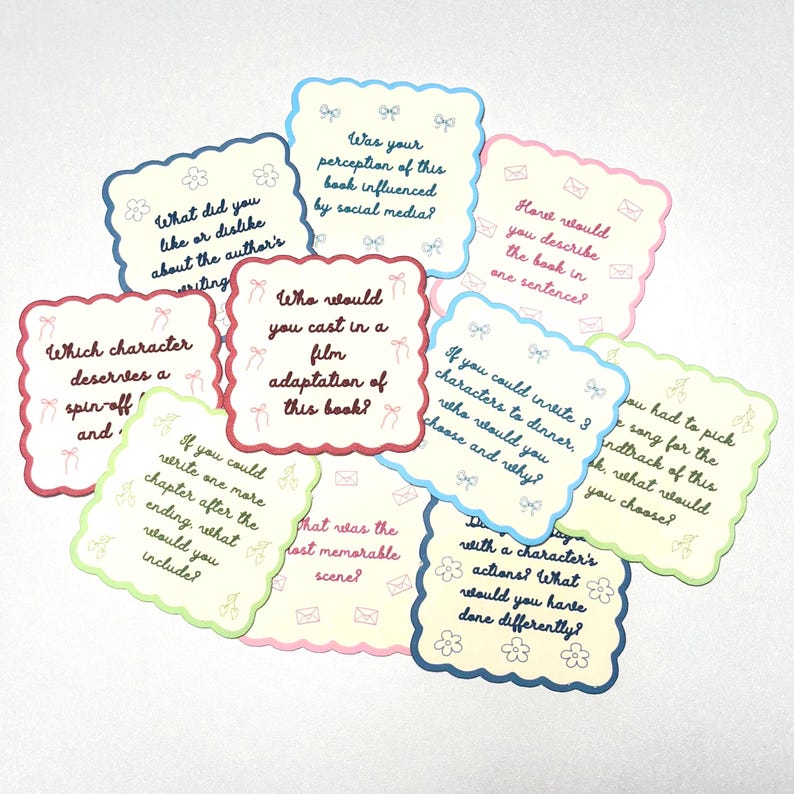 Was your
perception of this
book influenced
by social media?
What did you
like or dislike
about the author's
writing
How would
you describe
the book in
one sentence?
Who would
you cast in a
film
adaptation of
this book?
Which character
deserves a
spin-off
and
If you could invite 3
characters to dinner,
who would you
choose and why?
you had to pick
song for the
of this
what would
you choose?
If you could
write one more
chapter after the
ending, what
would you
include?
What was the
most memorable
scene?
with a character's
actions? What
would you have
done differently?